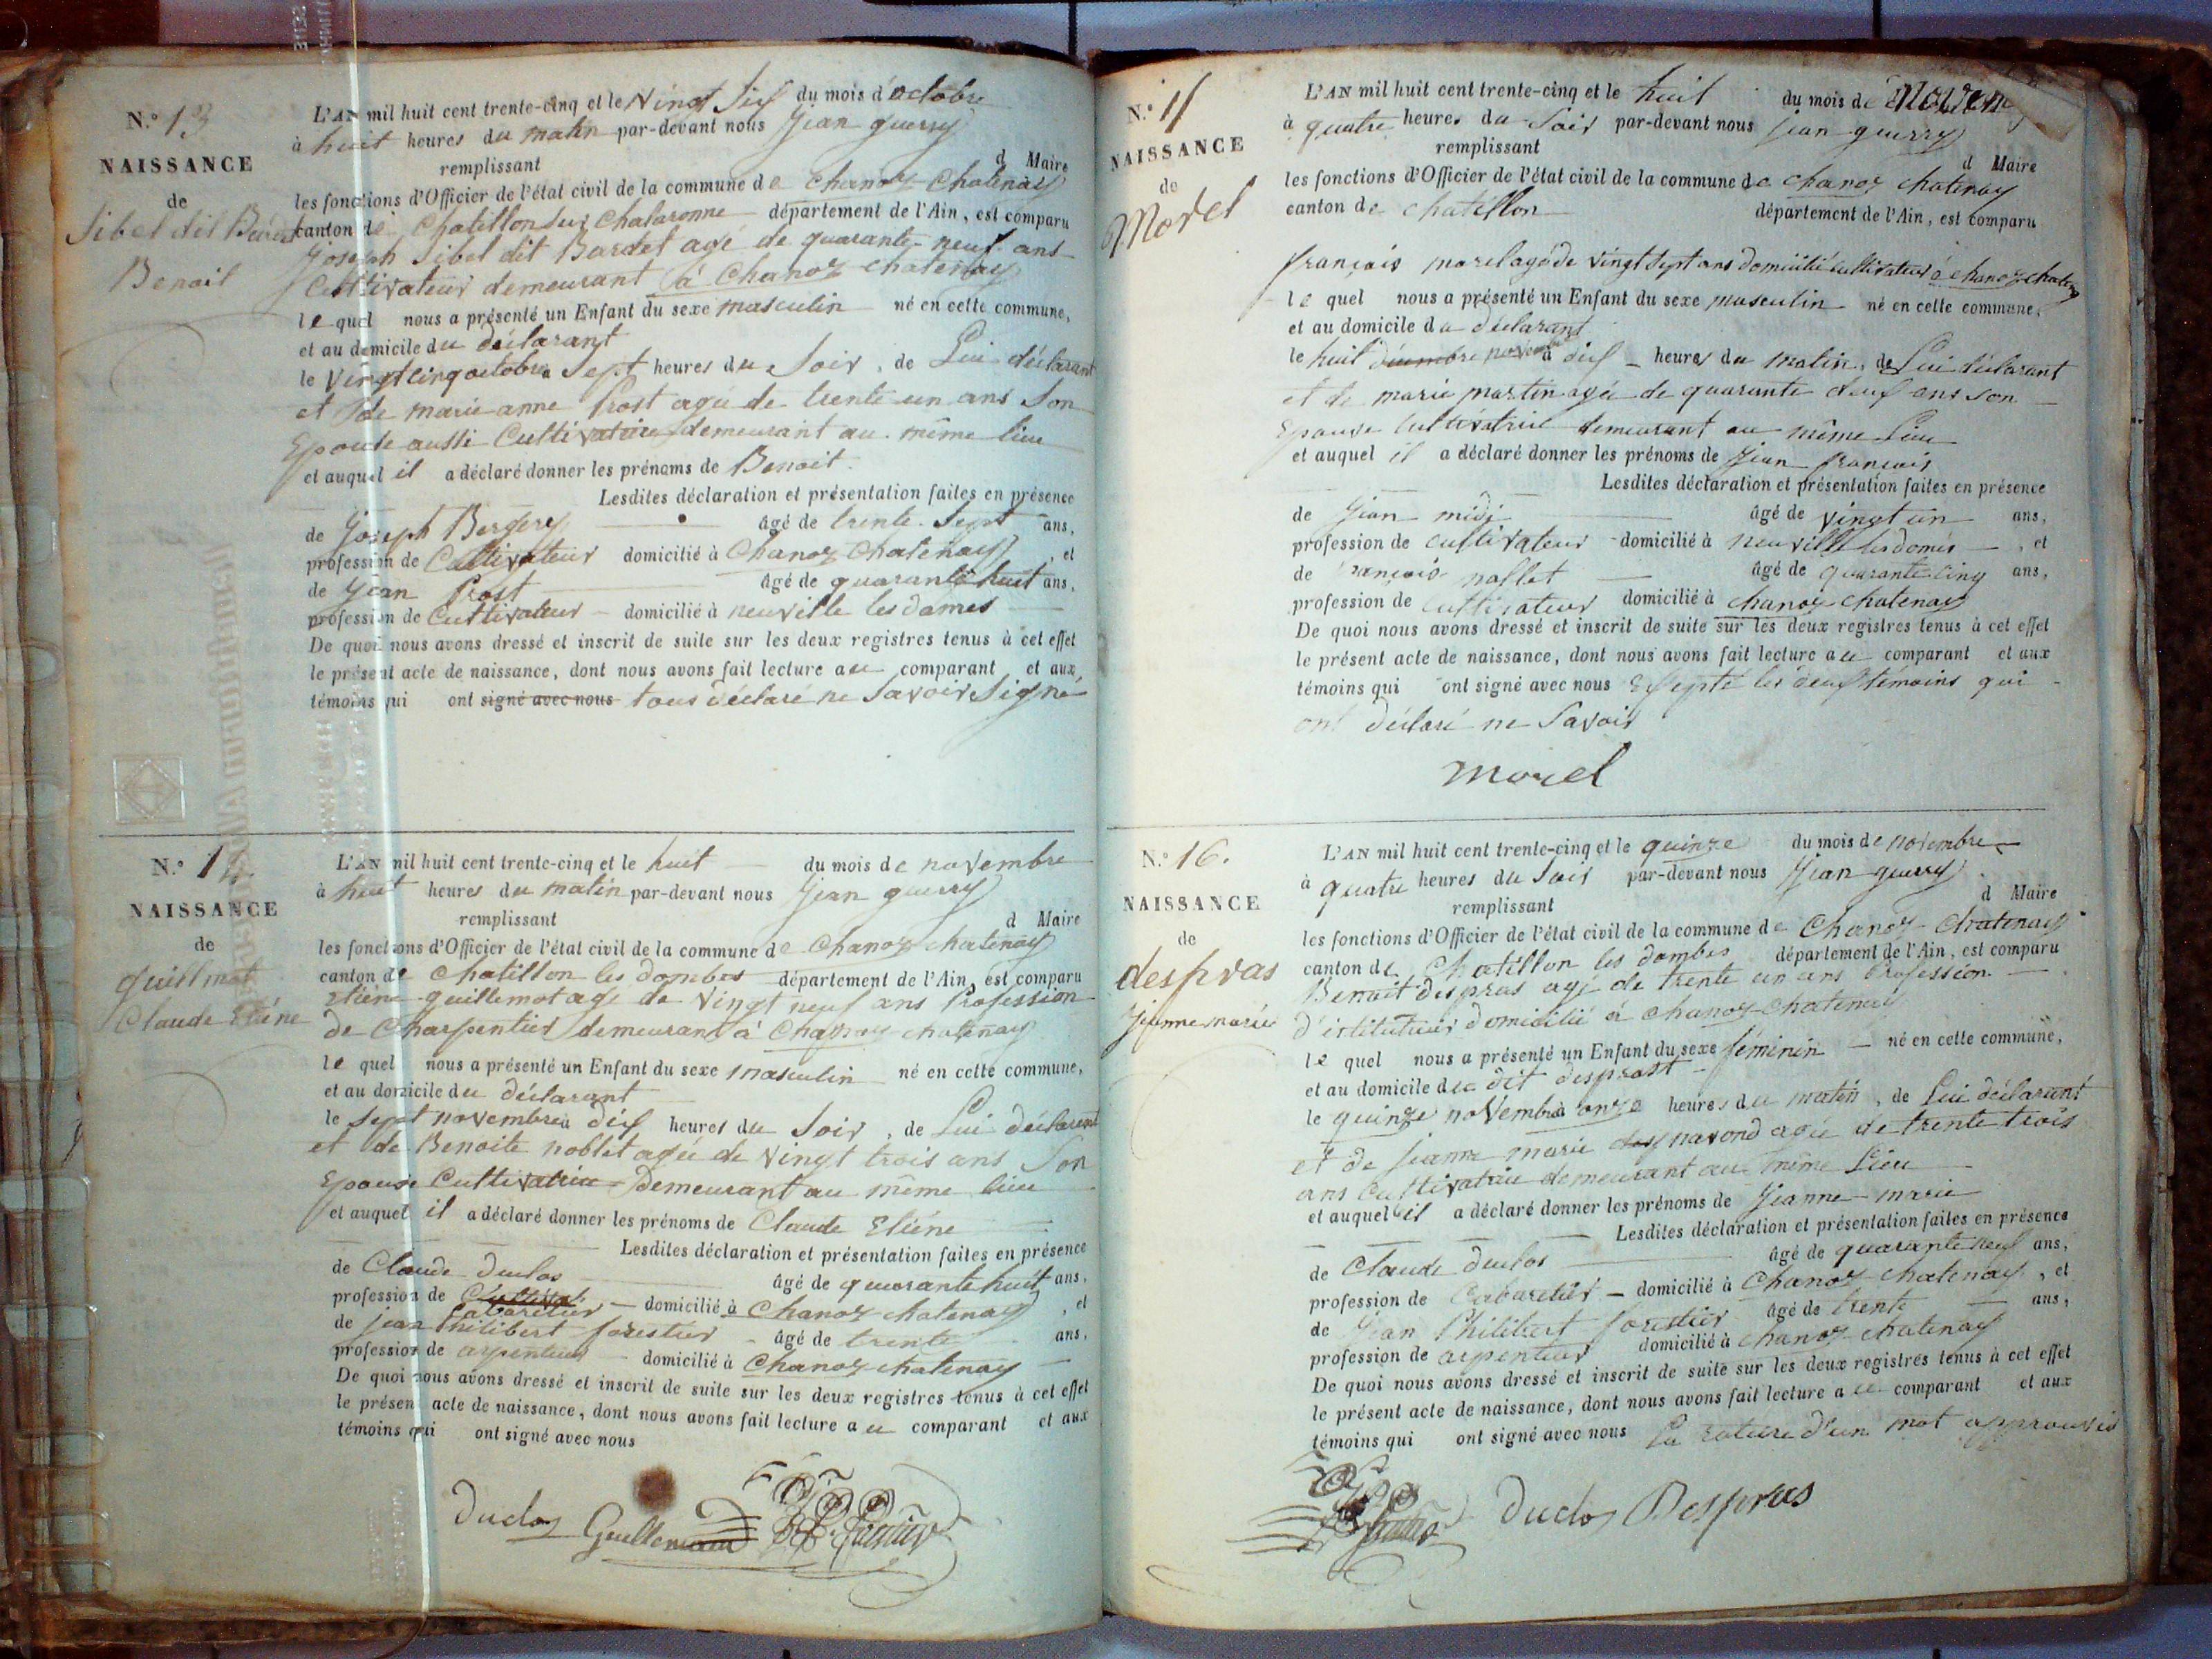 N.° 13
NAISSANCE
de
Sibel dit Bardet
Benoit
L'AN mil huit cent trente-cinq et le Vingt Six du mois d'octobre
à huit heures du matin par-devant nous Jean guerry
remplissant d Maire
les fonctions d'Officier de l'état civil de la commune de Chanoz Chatenay
canton de Chatillon sur Chalaronne département de l'Ain, est comparu
Joseph Sibel dit Bardet agé de quarante-neuf ans
Cultivateur demeurant à Chanoz chatenay
le quel nous a présenté un Enfant du sexe masculin né en cette commune,
et au domicile du déclarant
le Vingt cinq octobre à Sept heures du Soir, de Lui déclarant
et de marie anne Prost agée de trente un ans Son
Epouse aussi Cultivatrice demeurant au même lieu
et auquel il a déclaré donner les prénoms de Benoit.
Lesdites déclaration et présentation faites en présence
de Joseph Bergery âgé de trente-Sept ans,
profession de Cultivateur domicilié à Chanoz Chatenay, et
de Jean Prost âgé de quarante huit ans,
profession de Cultivateur domicilié à neuville les dames
De quoi nous avons dressé et inscrit de suite sur les deux registres tenus à cet effet
le présent acte de naissance, dont nous avons fait lecture au comparant et aux
témoins qui ont signé avec nous tous déclaré ne Savoir Signé
N.° 14
NAISSANCE
de
guillmot
Claude Etiéne
L'AN mil huit cent trente-cinq et le huit du mois de novembre
à huit heures du matin par-devant nous Jean guerry
remplissant d Maire
les fonctions d'Officier de l'état civil de la commune de Chanoz chatenay
canton de Chatillon les dombes département de l'Ain, est comparu
Etiéne guillemot agé de Vingt neuf ans Profession
de Charpentier demeurant à Chanoz chatenay
le quel nous a présenté un Enfant du sexe masculin né en cette commune,
et au domicile du déclarant
le Sept novembre à dix heures du Soir, de Lui déclarent
et de Benoite noblet agée de Vingt trois ans Son
Epouse Cultivatrice demeurant au même lieu
et auquel il a déclaré donner les prénoms de Claude Etiéne
Lesdites déclaration et présentation faites en présence
de Claude Duclos âgé de quarante huit ans,
profession de Cultivat Cabaretier domicilié à Chanoz chatenay, et
de jean Philibert forestier âgé de trente ans,
profession de arpenteur domicilié à Chanoz chatenay
De quoi nous avons dressé et inscrit de suite sur les deux registres tenus à cet effet
le présent acte de naissance, dont nous avons fait lecture au comparant et aux
témoins qui ont signé avec nous
Duclos
N.° 15
NAISSANCE
de
Morel
L'AN mil huit cent trente-cinq et le huit du mois de novem
à quatre heures du Soir par-devant nous jean guerry
remplissant d Maire
les fonctions d'Officier de l'état civil de la commune de chanoz chatenay
canton de chatillon département de l'Ain, est comparu
françois morel agé de vingt Sept ans domicilié cultivateur à chanoz chatenay
le quel nous a présenté un Enfant du sexe masculin né en cette commune,
et au domicile du déclarant
le huit décembre novembre à dix heures du matin, de Lui déclarant
et de marie martin agée de quarante deux ans son
Epouse Cultivatrice demeurant au même Lieu
et auquel il a déclaré donner les prénoms de Jean françois
Lesdites déclaration et présentation faites en présence
de Jean midi âgé de vingt un ans,
profession de cultivateur domicilié à neuville les domes, et
de françois nallet âgé de quarante cinq ans,
profession de cultivateur domicilié à chanoz chatenay
De quoi nous avons dressé et inscrit de suite sur les deux registres tenus à cet effet
le présent acte de naissance, dont nous avons fait lecture au comparant et aux
témoins qui ont signé avec nous Exsepté les deux temoins qui
ont déclaré ne Savoir
morel
N.° 16.
NAISSANCE
de
despras
Jeanne marie
L'AN mil huit cent trente-cinq et le quinze du mois de novembre
à quatre heures du Soir par-devant nous Jean guerry
remplissant d Maire
les fonctions d'Officier de l'état civil de la commune de Chanoz-Chatenay
canton de Chatillon les dombes département de l'Ain, est comparu
Benoit despras agé de trente un ans Profession
d'istituteur domicilié à Chanoz Chatenay
le quel nous a présenté un Enfant du sexe feminin né en cette commune,
et au domicile du dit desprost
le quinze novembre à onze heures du matin, de Lui déclarant
et de jeanne marie navond agée de trente trois
ans Cultivatrice demeurant au même Lieu
et auquel il a déclaré donner les prénoms de Jeanne-marie
Lesdites déclaration et présentation faites en présence
de Claude duclos âgé de quarante neuf ans,
profession de Cabaretier domicilié à Chanoz chatenay, et
de Jean Philibert forestier âgé de trente ans,
profession de arpenteur domicilié à chanoz chatenay
De quoi nous avons dressé et inscrit de suite sur les deux registres tenus à cet effet
le présent acte de naissance, dont nous avons fait lecture au comparant et aux
témoins qui ont signé avec nous La rature d'un mot approuvés
Duclos Despras